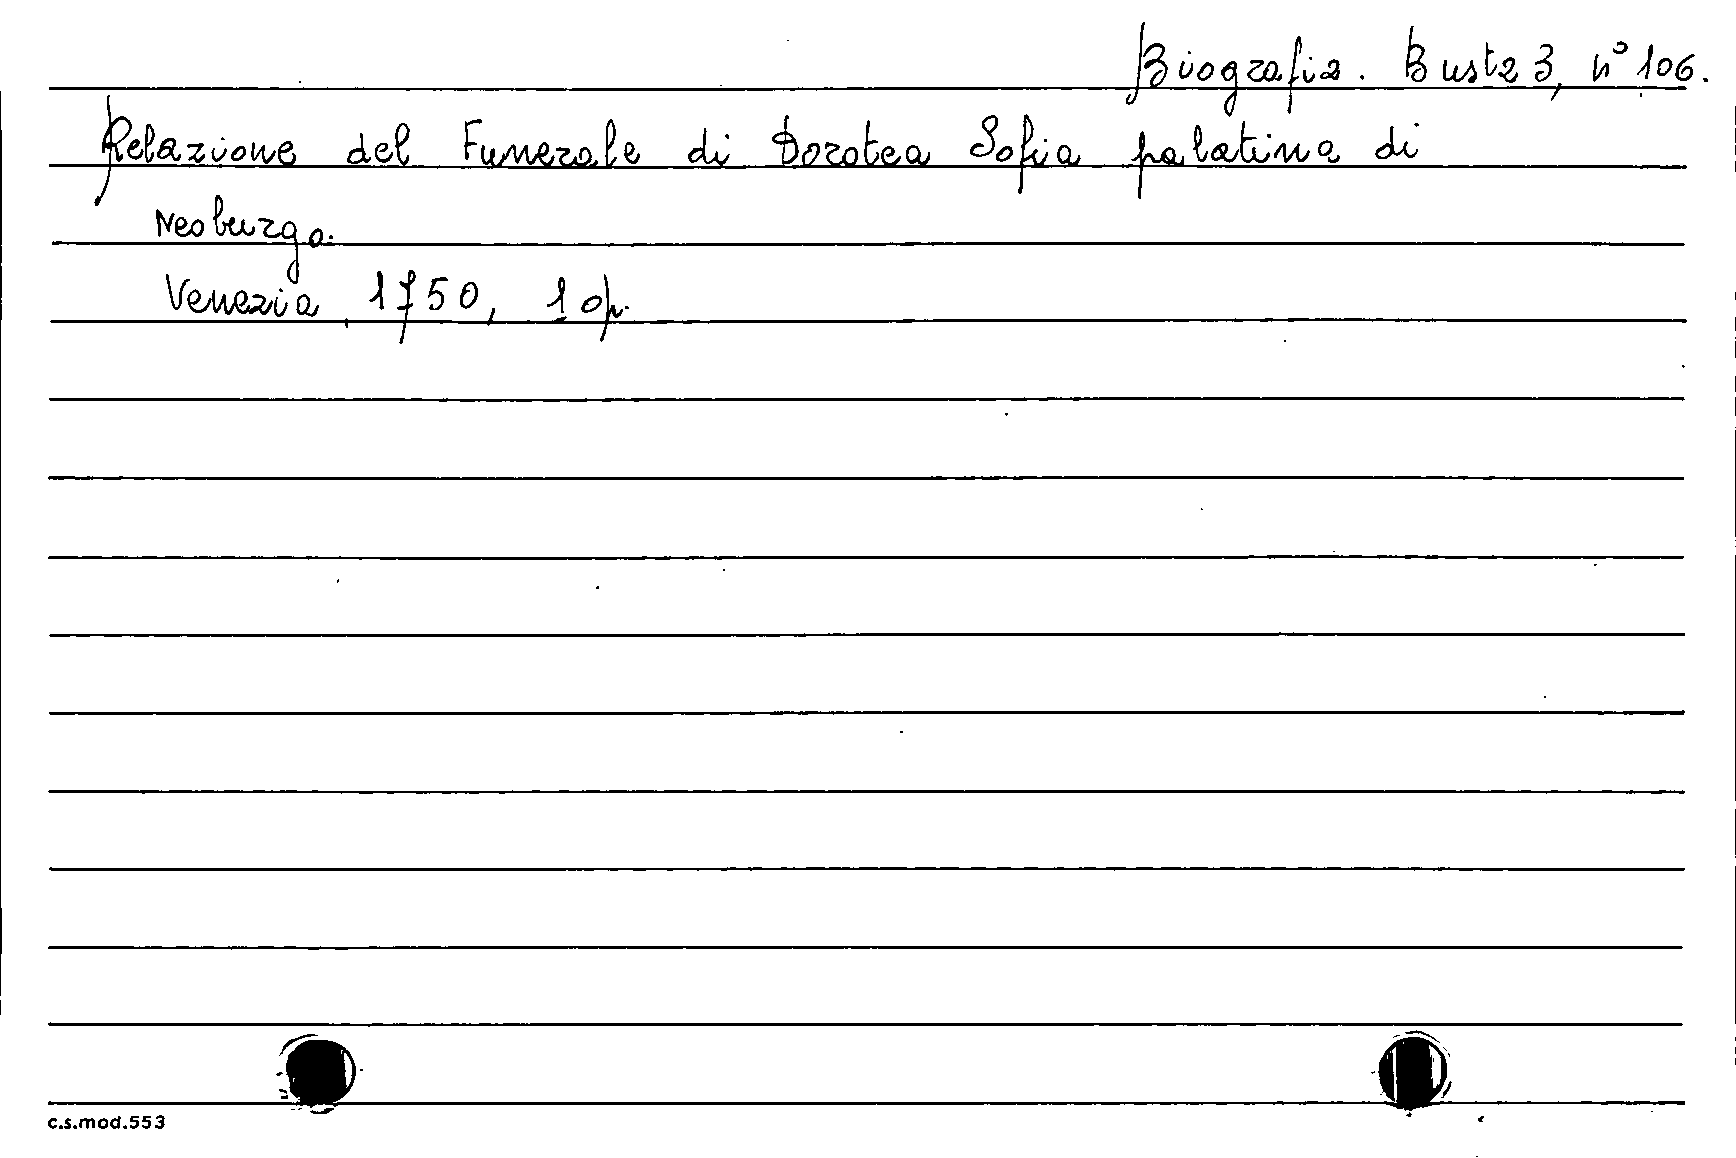 Biografia. Busta 3, n° 106.
Relazione del Funerale di Dorotea Sofia palatina di
Neoburgo.
Venezia, 1750, 1 op.
c.s.mod.553